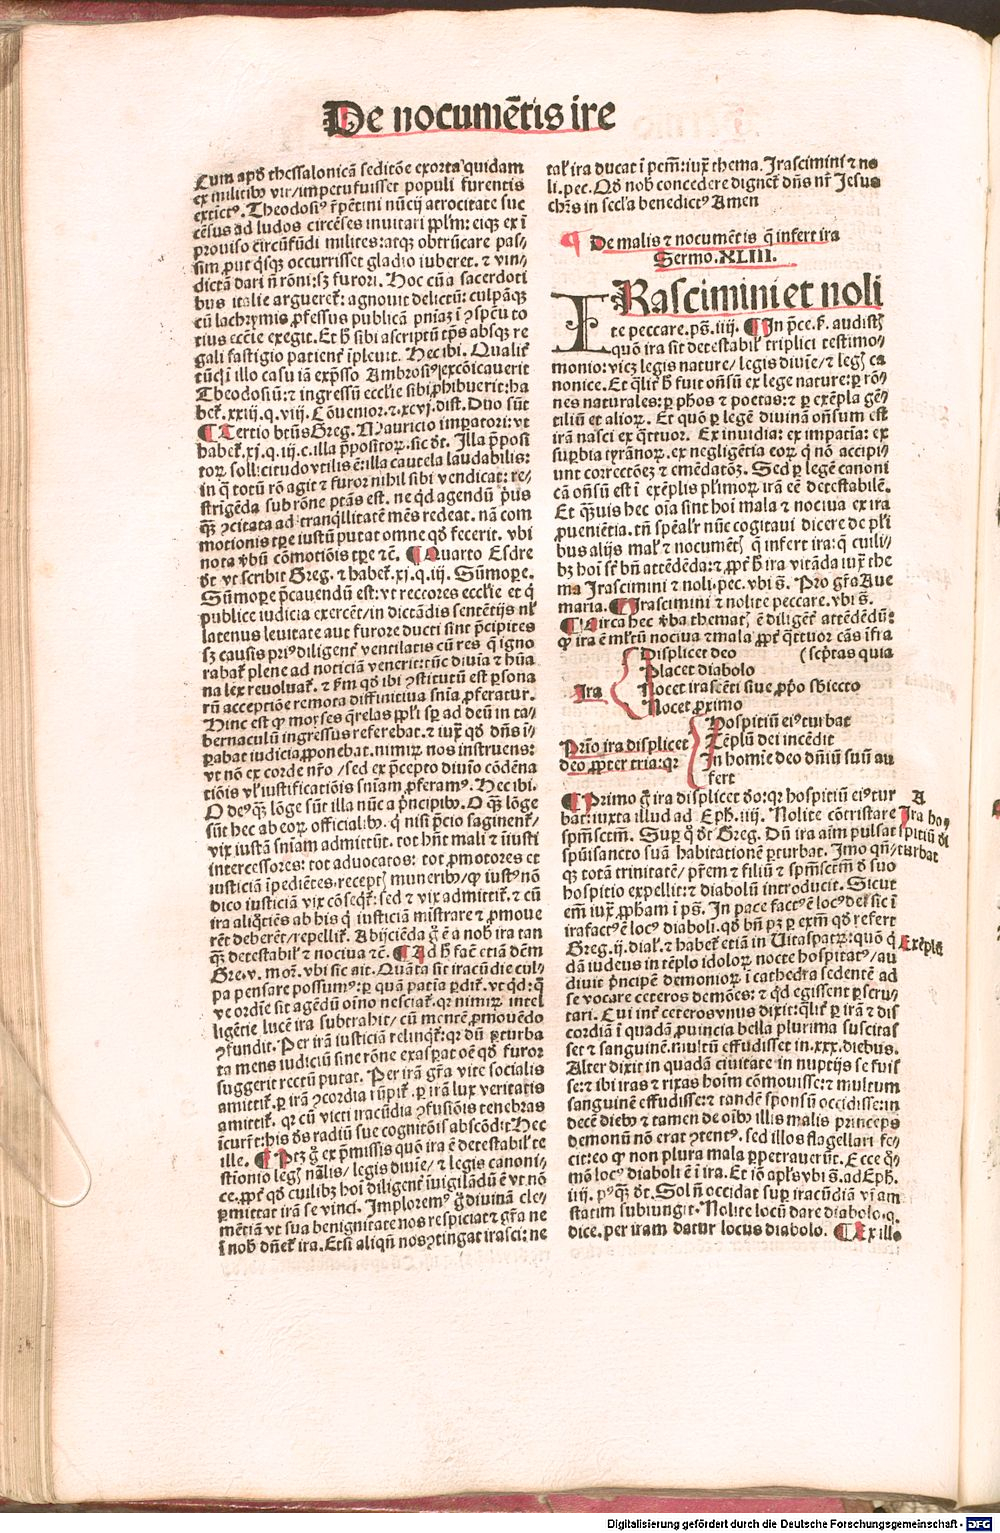 De nocumẽtis ire
Cum apđ thessalonicã seditõe exorta quidam
ex militibꝰ vir/impetu fuisset populi furentis
extictꝰ. Theodosiꝰ r̃pẽtini nũcij atrocitate suc
cẽsus ad ludos circẽses inuitari pplm̃: eiqꝫ ex ĩ
prouiso circũfũdi milites: atqꝫ obtrũcare pas⸗
sim put q̃sqꝫ occurrisset gladio iuberet. ⁊ vin⸗
dictã dari ñ rõni: sꝫ furori. Hoc cũ a sacerdoti
bus italie arguereť: agnouit delictũ: culpãqꝫ
cũ lachrymis ꝓfessus publicã pniaꝫ ĩ ꝯspẽu to
tius eccĩe exegit. Et h̃ sibi ascriptũ tp̃s absqꝫ re
gali fastigio patienť ĩpleuit. Hec ibi. Qualiť
tũc̃ ĩ illo casu iã exp̃sso Ambrosiꝰ excõicauerit
Theodosiũ: ⁊ ingressũ ecclie sibi ꝓhibuerit: ha
beť. xxiij. q. viij. Cõuenior. ⁊. xcvj. dist. Duo sũt
¶ Tertio btũs Greg. Mauricio imꝑatori: vt
habeť. xj. q. iij. c. illa p̃positoꝝ. sic đt. Illa p̃posi
toꝝ sollicitudo vtilis ẽ: illa cautela laudabilis:
in q̃ totũ rõ agit ⁊ furor nihil sibi vendicat: re⸗
strigẽda sub rõne ptãs est. ne qđ agendũ p̃us
q̃ꝫ ꝯcitata ad trãqlitatẽ mẽs redeat. nã com
motionis tꝑe iustũ putat omne qđ fecerit. vbi
nota v̾bũ cõmotiõis tꝑe ⁊c̃. ¶ Quarto Esdre
đt vt scribit Greg. ⁊ habeť. xj. q. iij. Sũmoꝑe.
Sũmoꝑe p̃cauendũ est: vt rectores ecclie et q̃
publice iudicia exercẽt/in dictãdis sentẽtijs nľ
latenus leuitate aut furore ducti sint p̃cipites
sꝫ causis priꝰ diligenť ventilatis cũ res q̃ igno
rabať plene ad noticiã venerit: tũc diuia ⁊ hũa
na lex reuoluať. ⁊ ẜm qđ ibi ꝯstitutũ est ꝑsona
rũ acceptiõe remota diffinitiua snĩa ꝓferatur.
Hinc est ꝙ moyses q̃relas pplĩ sꝑ ad deũ in ta⸗
bernaculũ ingressus referebat. ⁊ iuxᷓ qđ dñs i⸗
ꝑabat iudicia ꝓponebat. nimiꝝ nos instruens:
vt nõ ex corde nr̃o /sed ex p̃cepto diuĩo cõdẽna
tiõis vľ iustificatiõis snĩam ꝓferamꝰ. Hec ibi.
O deꝰ q̃ꝫ lõge sũt illa nũc a p̃ncipibꝰ. O q̃ꝫ lõge
sũt hec ab eoꝝ officialibꝰ. q̃ nisi p̃cio saginenť/
vix iustã snĩam admittũt. tot hñt mali ⁊ ĩiusti
intercessores: tot aduocatos: tot ꝓmotores et
iusticiã ĩpediẽtes. recepť muneribꝰ/ꝙ iustꝰ nõ
dico iusticiã vix cõseqť: sed ⁊ vix admittiť. ⁊ cũ
ira aliq̃ties ab his q̃ iusticiã mĩstrare ⁊ ꝓmoue
rẽt deberẽt/repelliť. Abijciẽda g̃ ẽ a nob̾ ira tan
q̃ꝫ detestabiľ ⁊ nociua ⁊c̃. ¶ Ad h̃ facẽ etiã dẽm
Gre. v. moꝝ. vbi sic ait. Quãta sit iracũdie cul⸗
pa pensare possumꝰ: ꝑ quã patĩa ꝑdiť. vt qđ: q̃
ve ordĩe sit agẽdũ oĩno nesciať. qꝛ nimiꝝ intel
ligẽtie lucẽ ira subtrahit/ cũ mentẽ ꝓmouẽdo
ꝯfundit. Per irã iusticiã relinqť: qꝛ dũ ꝑturba
ta mens iudiciũ sine rõne exasꝑat oẽ qđ furor
suggerit rectũ putat. Per irã gr̃a vite socialis
amittiť. ꝑ irã ꝯcordia rũpiť. ꝑ irã lux veritatis
amittiť. qꝛ cũ victi iracũdia ꝯfusiõis tenebras
ĩcurrt: his đs radiũ sue cognitõis abscõdit Hec
ille. ¶ Ptꝫ g̃ ex p̃missis quõ ira ẽ detestabiľ te
stĩonio legꝭ nãlis/ legis diuĩe/ ⁊ legis canoni⸗
ce. ꝓpť qđ cuilibꝫ hoĩ diligenť ĩuigilãdũ ẽ vt nõ
ꝑmittat irã se vinci. Imploremꝰ g̃ diuinã cle⸗
mẽtiã vt sua benignitate nos respiciat ⁊ gr̃a ne
ĩ nob̾ dñeť ira. Etsi aliqñ nos ꝯtingat irasci: ne
taľ ira ducat ĩ pctm̃: iuxᷓ thema. Irascimini ⁊ no
li. pec. Qđ nob̾ concedere digneť dñs nr̃ Jesus
chr̃s in secľa benedictꝰ Amen
¶ De malis ⁊ nocumẽtis q̃ infert ira
Sermo. XLIII.
IRasciminiet noli
te peccare. ps̃. iiij. ¶ In p̃ce. ẜ. audistꝭ
quõ ira sit detestabiľ triplici testimo⸗
monio: vicꝫ legis nature/ legis diuĩe/ ⁊ legꝭ ca
nonice. Et q̃liť h̃ fuit oñsũ ex lege nature: ꝑ rõ⸗
nes naturales: ꝑ ph̃os ⁊ poetas: ⁊ ꝑ exẽpla gẽ⸗
tiliũ et alioꝝ. Et quõ ꝑ legẽ diuinã oñsum est
irã nasci ex q̃ttuor. Ex inuidia: ex impatĩa: ex
suꝑbia tyrãnoꝝ. ex negligẽtia eoꝝ q̃ nõ accipi⸗
unt correctõeꝫ ⁊ emẽdatõꝫ. Sed ꝑ legẽ canoni
cã oñsũ est ĩ exẽplis pľimoꝝ irã eẽ detestabilẽ.
Et q̃uis hec oĩa sint hoĩ mala ⁊ nociua ex ira
ꝓueniẽtia. tñ sp̃eaľr nũc cogitaui dicere de pľi
bus alijs maľ ⁊ nocumẽtꝭ q̃ infert ira: q̃ cuili⸗
bꝫ hoĩ sr̃t bñ attẽdẽda: ⁊ ꝓpť h̃ ira vitãda iuxᷓ the
ma Irascimini ⁊ noli. pec. vbi s̃. Pro gr̃a Aue
maria. ¶ Irascimini ⁊ nolite peccare. vbi s̃.
¶ Circa hec v̾ba thematꝭ ẽ diligenť attẽdẽdũ:
ꝙ ira ẽ mľtũ nociua ⁊ mala ꝓpť q̃ttuor cãs ĩfra
(scp̃tas quia
Ira
Displicet deo
Placet diabolo
Nocet irascẽti siue ꝓp̃o sb̾iecto
Nocet ꝓximo
Prĩo ira displicet
deo ꝓpter tria: qꝛ
Hospitiũ eiꝰ turbat
Tẽplũ dei incẽdit
In homĩe deo dñiũ suũ au
fert
¶ Primo g̃ ira displicet đo: qꝛ hospitiũ eiꝰ tur
bat: iuxta illud ad Eph. iiij. Nolite cõtristare
spm̃sctm̃. Suꝑ q̃ đt Greg. Dũ ira aĩm pulsat
spũisancto suã habitationẽ ꝑturbat. Imo qñ⸗
qꝫ totã trinitatẽ/ pr̃em ⁊ filiũ ⁊ spm̃sctm̃ đ suo
hospitio expellit: ⁊ diabolũ introducit. Sicut
em̃ iuxᷓ ꝓpham ĩ ps̃. In pace factꝰ ẽ locꝰ dei sic ĩ
ira factꝰ ẽ locꝰ diaboli. qđ bñ pꝫ ꝑ exm̃ qđ refert
Greg. ij. dial. ⁊ habeť etiã in Vitaspatꝝ: quõ q̃
dã iudeus in tẽplo idoloꝝ nocte hospitatꝰ/ au
diuit p̃ncipẽ demonioꝝ ĩ cathedra sedentẽ ad
se vocare ceteros demões: ⁊ qđ egissent ꝑscru⸗
tari. Cui inť ceteros vnus dixit: q̃liť ꝑ irã ⁊ dis
cordiã ĩ quadã ꝓuincia bella plurima suscitas
set ⁊ sanguinẽ. multũ effudisset in. xxx. diebus.
Alter dixit in quadã ciuitate in nuptijs se fuis
se: ⁊ ibi iras ⁊ rixas hoĩm cõmouisse: ⁊ multum
sanguinẽ effudisse: ⁊ tandẽ sponsũ occidisse: in
decẽ diebꝰ ⁊ tamen de oĩbꝰ illis malis princeps
demonũ nõ erat ꝯtentꝰ. sed illos flagellari fe⸗
cit: eo ꝙ non plura mala ꝑpetrauerũt. Ecce q̃⸗
mõ locꝰ diaboli ẽ ĩ ira. Et iõ apľs vbi s̃. ad Eph.
iiij. pꝰq̃ꝫ đt. Sol ñ occidat suꝑ iracũdiã vr̃am
statim subiungit. Nolite locũ dare diabolo. q.
dice. per iram datur locus diabolo. ¶ Ex illo
A
Ira ho⸗
spitiũ đi
turbat
Exẽplũ
Digitalisierung gefördert durch die Deutsche Forschungsgemeinschaft - DFG